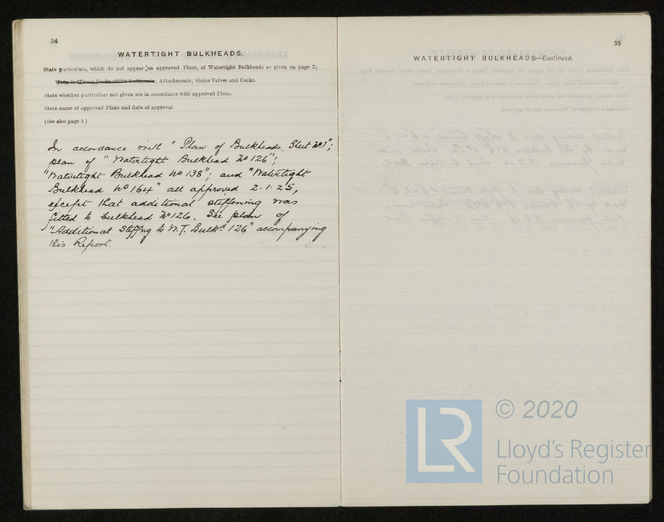 34
WATERTIGHT BULKHEADS.
State particulars, which do not appear on approved Plans, of Watertight Bulkheads as given on page 2;
Attachments; Sluice Valves and Cocks.
State whether particulars not given are in accordance with approved Plans.
State name of approved Plans and date of approval
(See also page 4.)
In accordance with "Plan of Bulkheads, Sheet No 1";
plan of "Watertight Bulkhead No 126";
"Watertight Bulkhead No 138"; and "Watertight
Bulkhead No 164" all approved 2.1.25,
except that additional stiffening was
fitted to bulkhead No 126. See plan of
"Additional Stiffng to W.T. Bulkd 126" accompanying
this Report.
35
WATERTIGHT BULKHEADS—Continued.
LR
© 2020
Lloyd's Register
Foundation